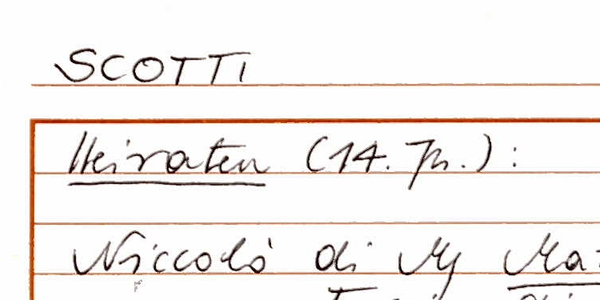 SCOTTI
Heiraten (14. Jh.):
Niccolò di M